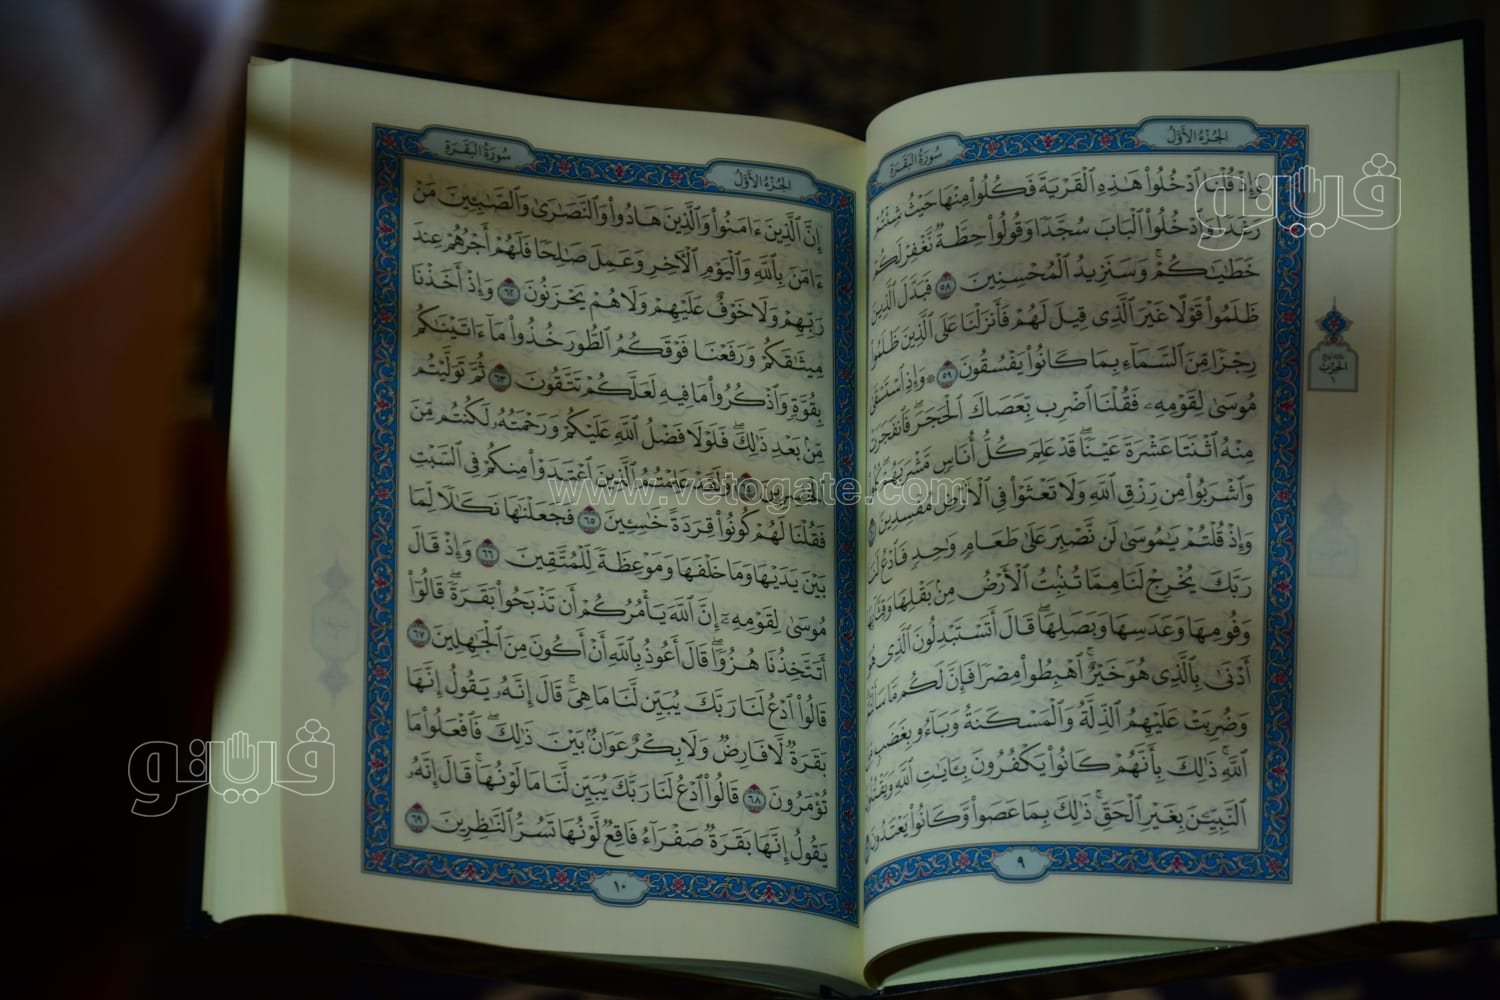 الجُزْءُ الأَوَّلُ
سُورَةُ البَقَرَةِ
وَإِذْ قُلْنَا ٱدْخُلُوا۟ هَـٰذِهِ ٱلْقَرْيَةَ فَكُلُوا۟ مِنْهَا حَيْثُ شِئْتُمْ
رَغَدًا وَٱدْخُلُوا۟ ٱلْبَابَ سُجَّدًا وَقُولُوا۟ حِطَّةٌ نَّغْفِرْ لَكُمْ
خَطَـٰيَـٰكُمْ ۚ وَسَنَزِيدُ ٱلْمُحْسِنِينَ ٥٨ فَبَدَّلَ ٱلَّذِينَ
ظَلَمُوا۟ قَوْلًا غَيْرَ ٱلَّذِى قِيلَ لَهُمْ فَأَنزَلْنَا عَلَى ٱلَّذِينَ ظَلَمُوا۟
رِجْزًا مِّنَ ٱلسَّمَآءِ بِمَا كَانُوا۟ يَفْسُقُونَ ٥٩ ۞ وَإِذِ ٱسْتَسْقَىٰ
مُوسَىٰ لِقَوْمِهِۦ فَقُلْنَا ٱضْرِب بِّعَصَاكَ ٱلْحَجَرَ ۖ فَٱنفَجَرَتْ
مِنْهُ ٱثْنَتَا عَشْرَةَ عَيْنًا ۖ قَدْ عَلِمَ كُلُّ أُنَاسٍ مَّشْرَبَهُمْ ۖ كُلُوا۟
وَٱشْرَبُوا۟ مِن رِّزْقِ ٱللَّهِ وَلَا تَعْثَوْا۟ فِى ٱلْأَرْضِ مُفْسِدِينَ
وَإِذْ قُلْتُمْ يَـٰمُوسَىٰ لَن نَّصْبِرَ عَلَىٰ طَعَامٍ وَٰحِدٍ فَٱدْعُ لَنَا
رَبَّكَ يُخْرِجْ لَنَا مِمَّا تُنۢبِتُ ٱلْأَرْضُ مِنۢ بَقْلِهَا وَقِثَّآئِهَا
وَفُومِهَا وَعَدَسِهَا وَبَصَلِهَا ۖ قَالَ أَتَسْتَبْدِلُونَ ٱلَّذِى هُوَ
أَدْنَىٰ بِٱلَّذِى هُوَ خَيْرٌ ۚ ٱهْبِطُوا۟ مِصْرًا فَإِنَّ لَكُم مَّا سَأَلْتُمْ ۗ
وَضُرِبَتْ عَلَيْهِمُ ٱلذِّلَّةُ وَٱلْمَسْكَنَةُ وَبَآءُو بِغَضَبٍ مِّنَ
ٱللَّهِ ۗ ذَٰلِكَ بِأَنَّهُمْ كَانُوا۟ يَكْفُرُونَ بِـَٔايَـٰتِ ٱللَّهِ وَيَقْتُلُونَ
ٱلنَّبِيِّـۧنَ بِغَيْرِ ٱلْحَقِّ ۗ ذَٰلِكَ بِمَا عَصَوا۟ وَّكَانُوا۟ يَعْتَدُونَ
٩
الحِزْبُ
١
سُورَةُ البَقَرَةِ
الجُزْءُ الأَوَّلُ
إِنَّ ٱلَّذِينَ ءَامَنُوا۟ وَٱلَّذِينَ هَادُوا۟ وَٱلنَّصَـٰرَىٰ وَٱلصَّـٰبِـِٔينَ مَنْ
ءَامَنَ بِٱللَّهِ وَٱلْيَوْمِ ٱلْـَٔاخِرِ وَعَمِلَ صَـٰلِحًا فَلَهُمْ أَجْرُهُمْ عِندَ
رَبِّهِمْ وَلَا خَوْفٌ عَلَيْهِمْ وَلَا هُمْ يَحْزَنُونَ ٦٢ وَإِذْ أَخَذْنَا
مِيثَـٰقَكُمْ وَرَفَعْنَا فَوْقَكُمُ ٱلطُّورَ خُذُوا۟ مَآ ءَاتَيْنَـٰكُم
بِقُوَّةٍ وَٱذْكُرُوا۟ مَا فِيهِ لَعَلَّكُمْ تَتَّقُونَ ٦٣ ثُمَّ تَوَلَّيْتُم
مِّنۢ بَعْدِ ذَٰلِكَ ۖ فَلَوْلَا فَضْلُ ٱللَّهِ عَلَيْكُمْ وَرَحْمَتُهُۥ لَكُنتُم مِّنَ
ٱلْخَـٰسِرِينَ ٦٤ وَلَقَدْ عَلِمْتُمُ ٱلَّذِينَ ٱعْتَدَوْا۟ مِنكُمْ فِى ٱلسَّبْتِ
فَقُلْنَا لَهُمْ كُونُوا۟ قِرَدَةً خَـٰسِـِٔينَ ٦٥ فَجَعَلْنَـٰهَا نَكَـٰلًا لِّمَا
بَيْنَ يَدَيْهَا وَمَا خَلْفَهَا وَمَوْعِظَةً لِّلْمُتَّقِينَ ٦٦ وَإِذْ قَالَ
مُوسَىٰ لِقَوْمِهِۦٓ إِنَّ ٱللَّهَ يَأْمُرُكُمْ أَن تَذْبَحُوا۟ بَقَرَةً ۖ قَالُوٓا۟
أَتَتَّخِذُنَا هُزُوًا ۖ قَالَ أَعُوذُ بِٱللَّهِ أَنْ أَكُونَ مِنَ ٱلْجَـٰهِلِينَ ٦٧
قَالُوا۟ ٱدْعُ لَنَا رَبَّكَ يُبَيِّن لَّنَا مَا هِىَ ۚ قَالَ إِنَّهُۥ يَقُولُ إِنَّهَا
بَقَرَةٌ لَّا فَارِضٌ وَلَا بِكْرٌ عَوَانٌۢ بَيْنَ ذَٰلِكَ ۖ فَٱفْعَلُوا۟ مَا
تُؤْمَرُونَ ٦٨ قَالُوا۟ ٱدْعُ لَنَا رَبَّكَ يُبَيِّن لَّنَا مَا لَوْنُهَا ۚ قَالَ إِنَّهُۥ
يَقُولُ إِنَّهَا بَقَرَةٌ صَفْرَآءُ فَاقِعٌ لَّوْنُهَا تَسُرُّ ٱلنَّـٰظِرِينَ ٦٩
١٠
ڤيتو
www.vetogate.com
ڤيتو